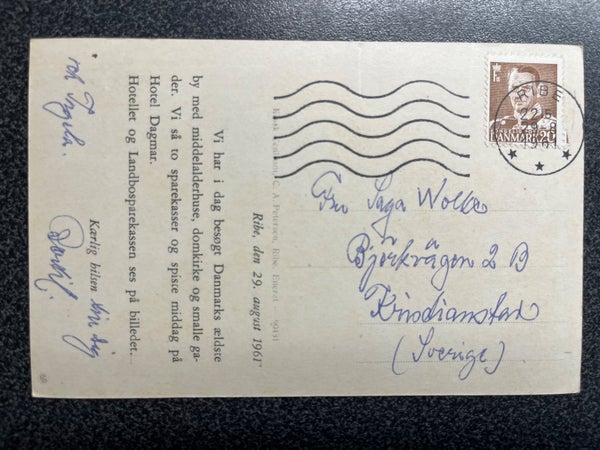 Ribe, den 29. august 1961
Vi har i dag besøgt Danmarks ældste
by med middelalderhuse, domkirke og smalle ga-
der. Vi så to sparekasser og spiste middag på
Hotel Dagmar.
Hotellet og Landbosparekassen ses på billedet.
Kærlig hilsen
C. A. Petersen, Ribe. Eneret
RIBE
DANMARK 20
Fru Saga Wolke
Björkvägen 2 B
Kristianstad
(Sverige)